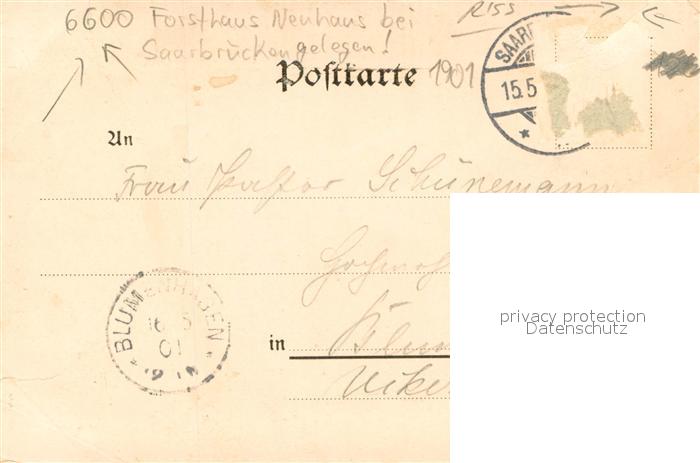 6600 Forsthaus Neuhaus bei
Saarbrücken gelegen!
RISS
Postkarte 1901
SAARB
15.5
An
Frau Pastor Schünemann
BLUMENHAGEN
16 5
01
in Blum
privacy protection
Datenschutz